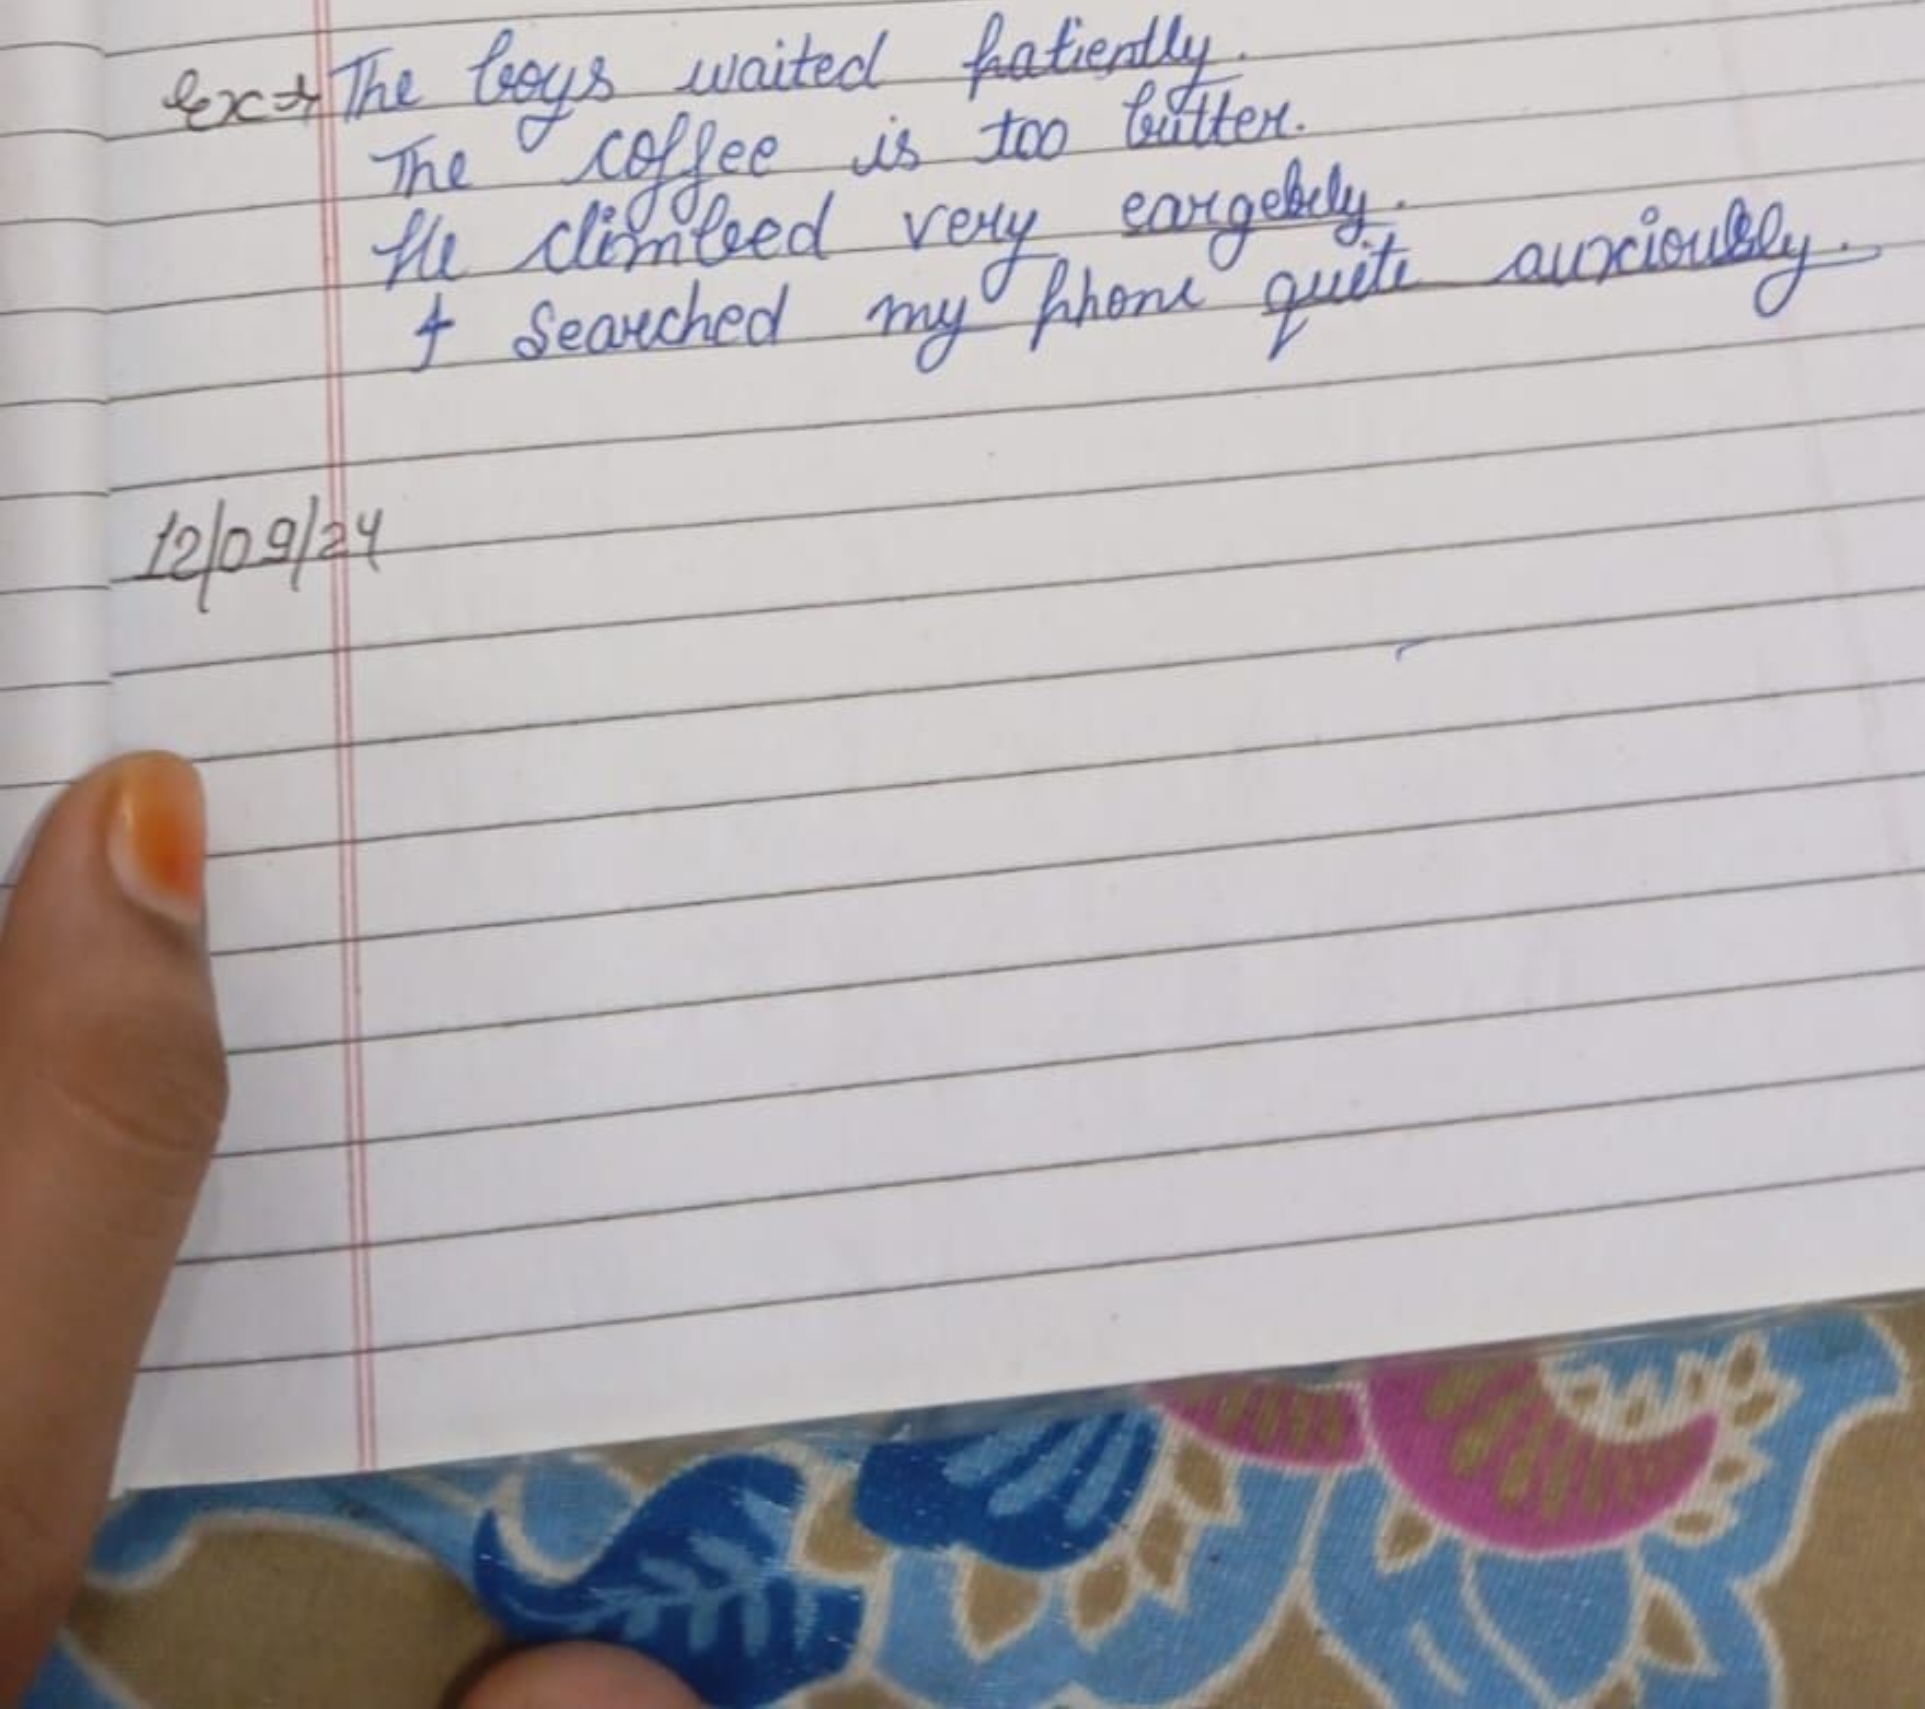 Ex→ The boys waited patiently.
The coffee is too bitter.
He climbed very eargebly.
I searched my phone quite auxciously.
12/09/24